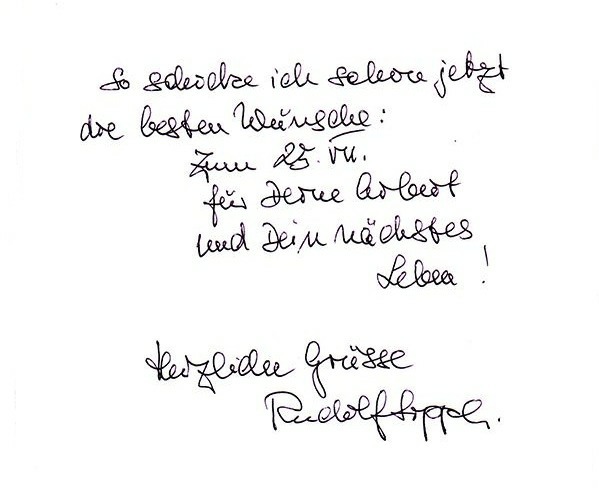 So schicke ich schon jetzt
die besten Wünsche:
Zum 25. VII.
für Deine Arbeit
und Dein nächstes
Leben!
Herzliche Grüsse
Rudolf